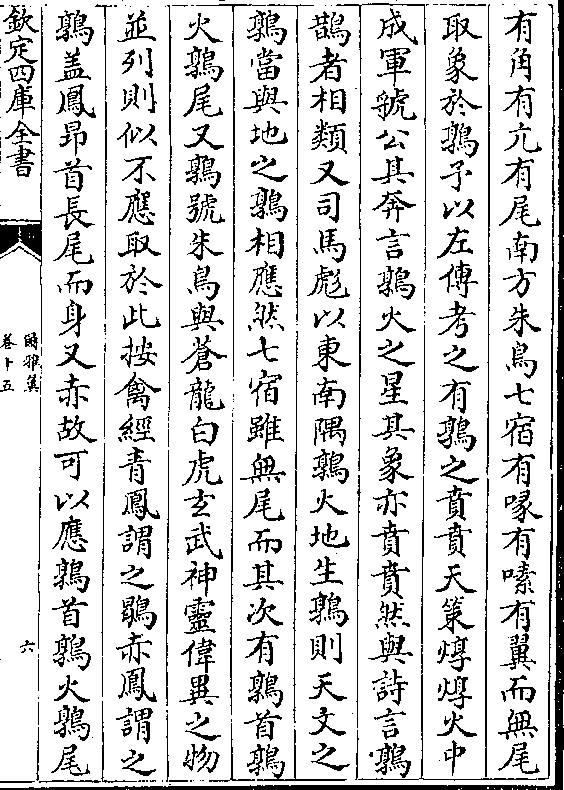 有角有亢有尾南方朱鳥七宿有喙有嗉有翼而無尾
取象於鶉予以左傳考之有鶉之賁賁天策焞焞火中
成軍虢公其奔言鶉火之星其象亦賁賁然與詩言鶉
鵲者相類又司馬彪以東南隅鶉火地生鶉則天文之
鶉當與地之鶉相應然七宿雖無尾而其次有鶉首鶉
火鶉尾又鶉號朱鳥與蒼龍白虎玄武神靈偉異之物
並列則似不應取於此按禽經青鳳謂之鶡赤鳳謂之
鶉盖鳳昂首長尾而身又赤故可以應鶉首鶉火鶉尾
欽定四庫全書
爾雅翼
卷十五
六